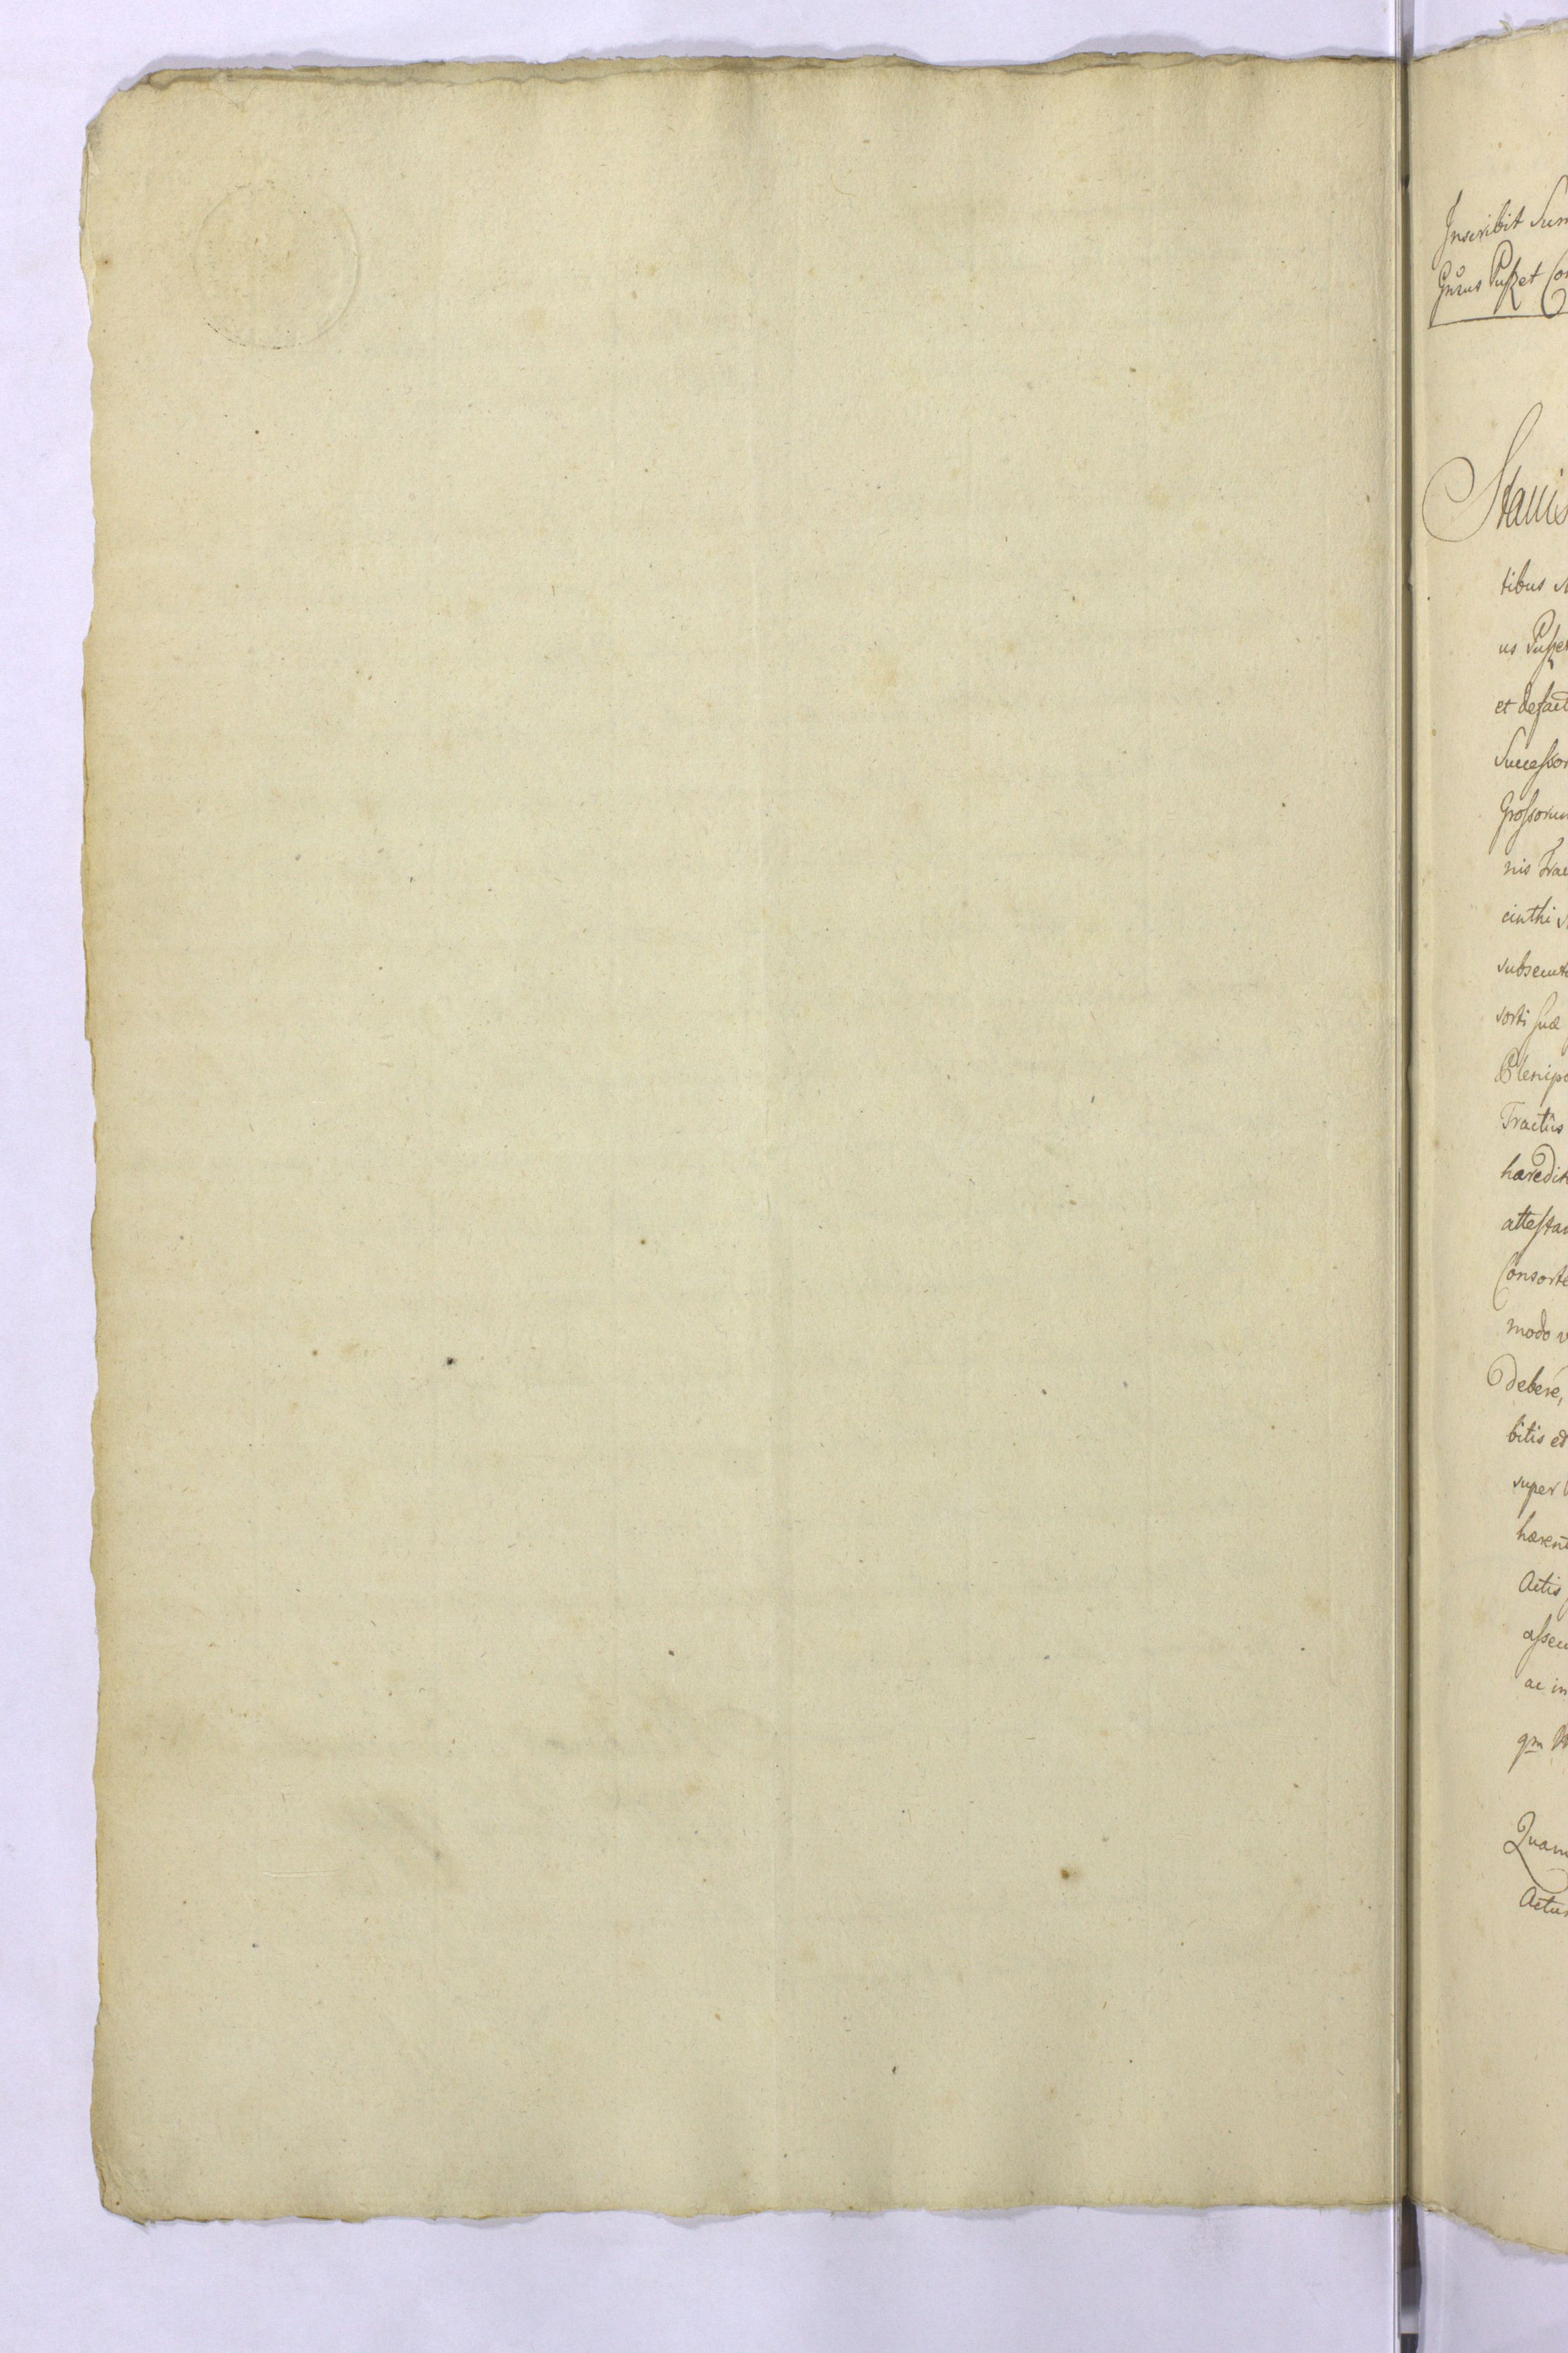 Inscribit Sum
Gnrus Puszet Con
Stanis
tibus
us Puszet
et defact
Successor
Grossorum
nis Trac
cinthi
subsecut
sorti suæ
Plenipo
Tractûs
hæredit
attestan
Consorte
modo v
debere,
bitis et
super
hærent
Actis
assecu
ac in
qm
Quam
Actum